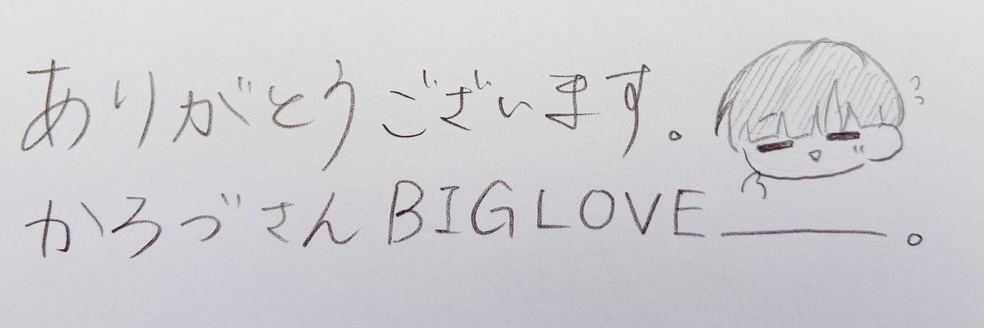 ありがとうございます。
かろづさん BIG LOVE____。